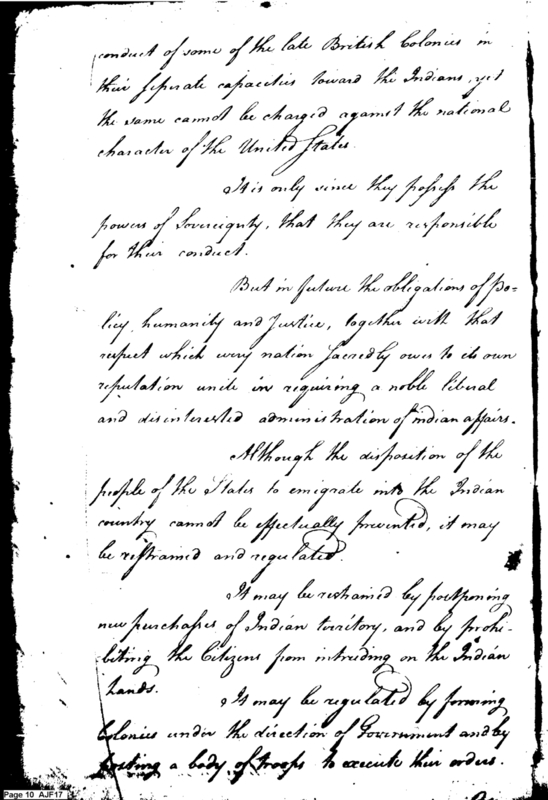 conduct of some of the late British Colonies in
their seperate capacities toward the Indians, yet
the same cannot be charged against the national
character of the United States.
It is only since they possess the
powers of Sovereignty, that they are responsible
for their conduct.
But in future the obligations of po=
licy, humanity and Justice, together with that
respect which every nation sacredly owes to its own
reputation unite in requiring a noble liberal
and disinterested administration of indian affairs.
Although the disposition of the
people of the States to emigrate into the Indian
country cannot be effectually prevented, it may
be restrained and regulated.
It may be restrained by postponing
new purchases of Indian territory, and by prohi-
biting the Citizens from intruding on the Indian
Lands.
It may be regulated by forming
Colonies under the direction of Government and by
posting a body of troops to execute their orders.
Page 10 AJF17